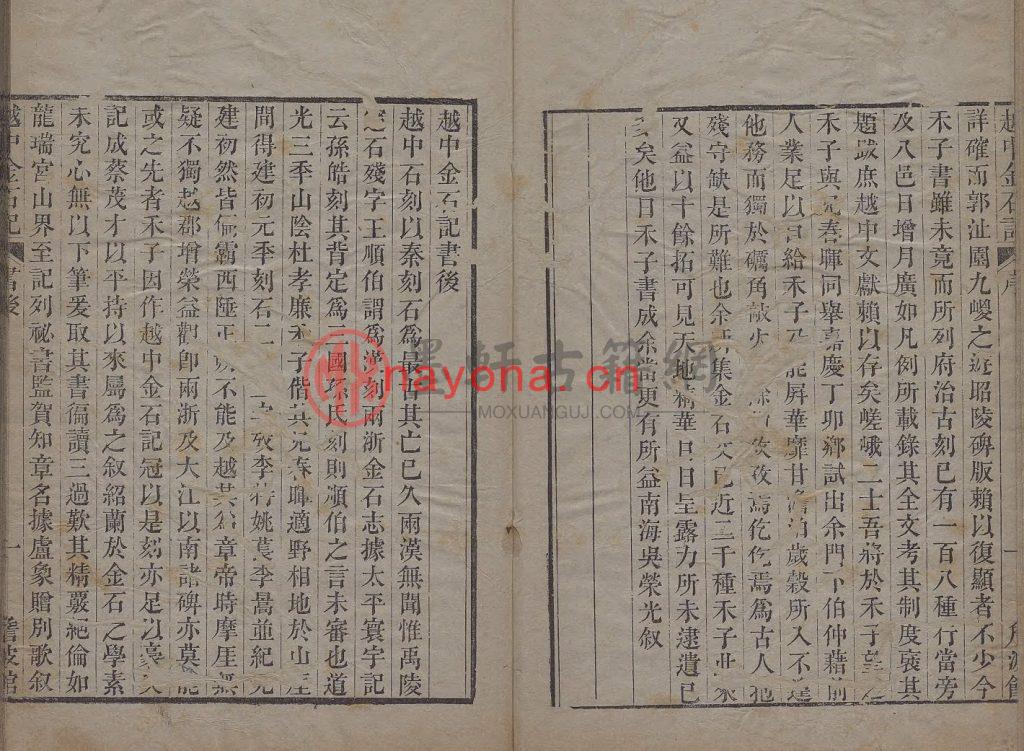 越中金石記 序
詳確而郭沚園九嵕之遊昭陵碑版賴以復顯者不少今
禾子書雖未竟而所列府治古刻已有一百八種行當旁
及八邑日增月廣如凡例所載錄其全文考其制度裒其
題跋庶越中文獻賴以存矣嵯峨二士吾將於禾子望之
禾子與兄春暉同舉嘉慶丁卯鄉試出余門下伯仲藉前
人業足以自給禾子能屏華靡甘澹泊歲穀所入不
他務而獨於礪角敲火孜孜焉矻矻焉為古人
殘守缺是所難也余集金石文已近二千種禾子
又益以千餘拓可見天地精華日日呈露力所未逮遺已
多矣他日禾子書成余當更有所益南海吳榮光叙
越中金石記書後
越中石刻以秦刻石為最古其亡已久兩漢無聞惟禹陵
窆石殘字王順伯謂為漢刻兩浙金石志據太平寰宇記
云孫皓刻其背定為三國孫氏刻則順伯之言未審也道
光三秊山陰杜孝廉禾子偕其兄春暉適野相地於山
間得建初元秊刻石二李特姚萇李暠並紀元
建初然皆偏霸西陲不能及越其為章帝時摩厓無
疑不獨越郡增榮益觀卽兩浙及大江以南諸碑亦莫能
或之先者禾子因作越中金石記冠以是刻亦足以豪矣
記成蔡茂才以平持以來屬為之叙紹蘭於金石之學素
未究心無以下筆爰取其書徧讀三過歎其精覈絕倫如
龍瑞宮山界至記列祕書監賀知章名據盧象贈別歌叙
越中金石記 書後 一 詹波館
墨軒古籍網
nayona.cn
MOXUANGUJI.COM